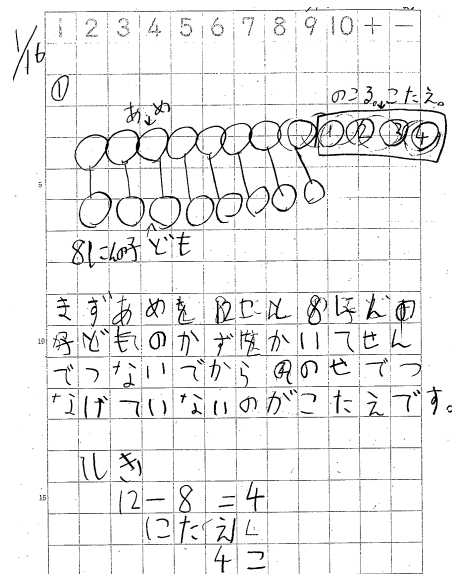 1 2 3 4 5 6 7 8 9 10 + −
1/16
①
のこる。こたえ。
あめ
① ② ③ ④
5
8にんの子ども
まずあめを12こと8にんの
10
子どものかずをかいてせん
でつないでから のせでつ
なげていないのがこたえです。
しき
15
12−8=4
こたえ
4こ